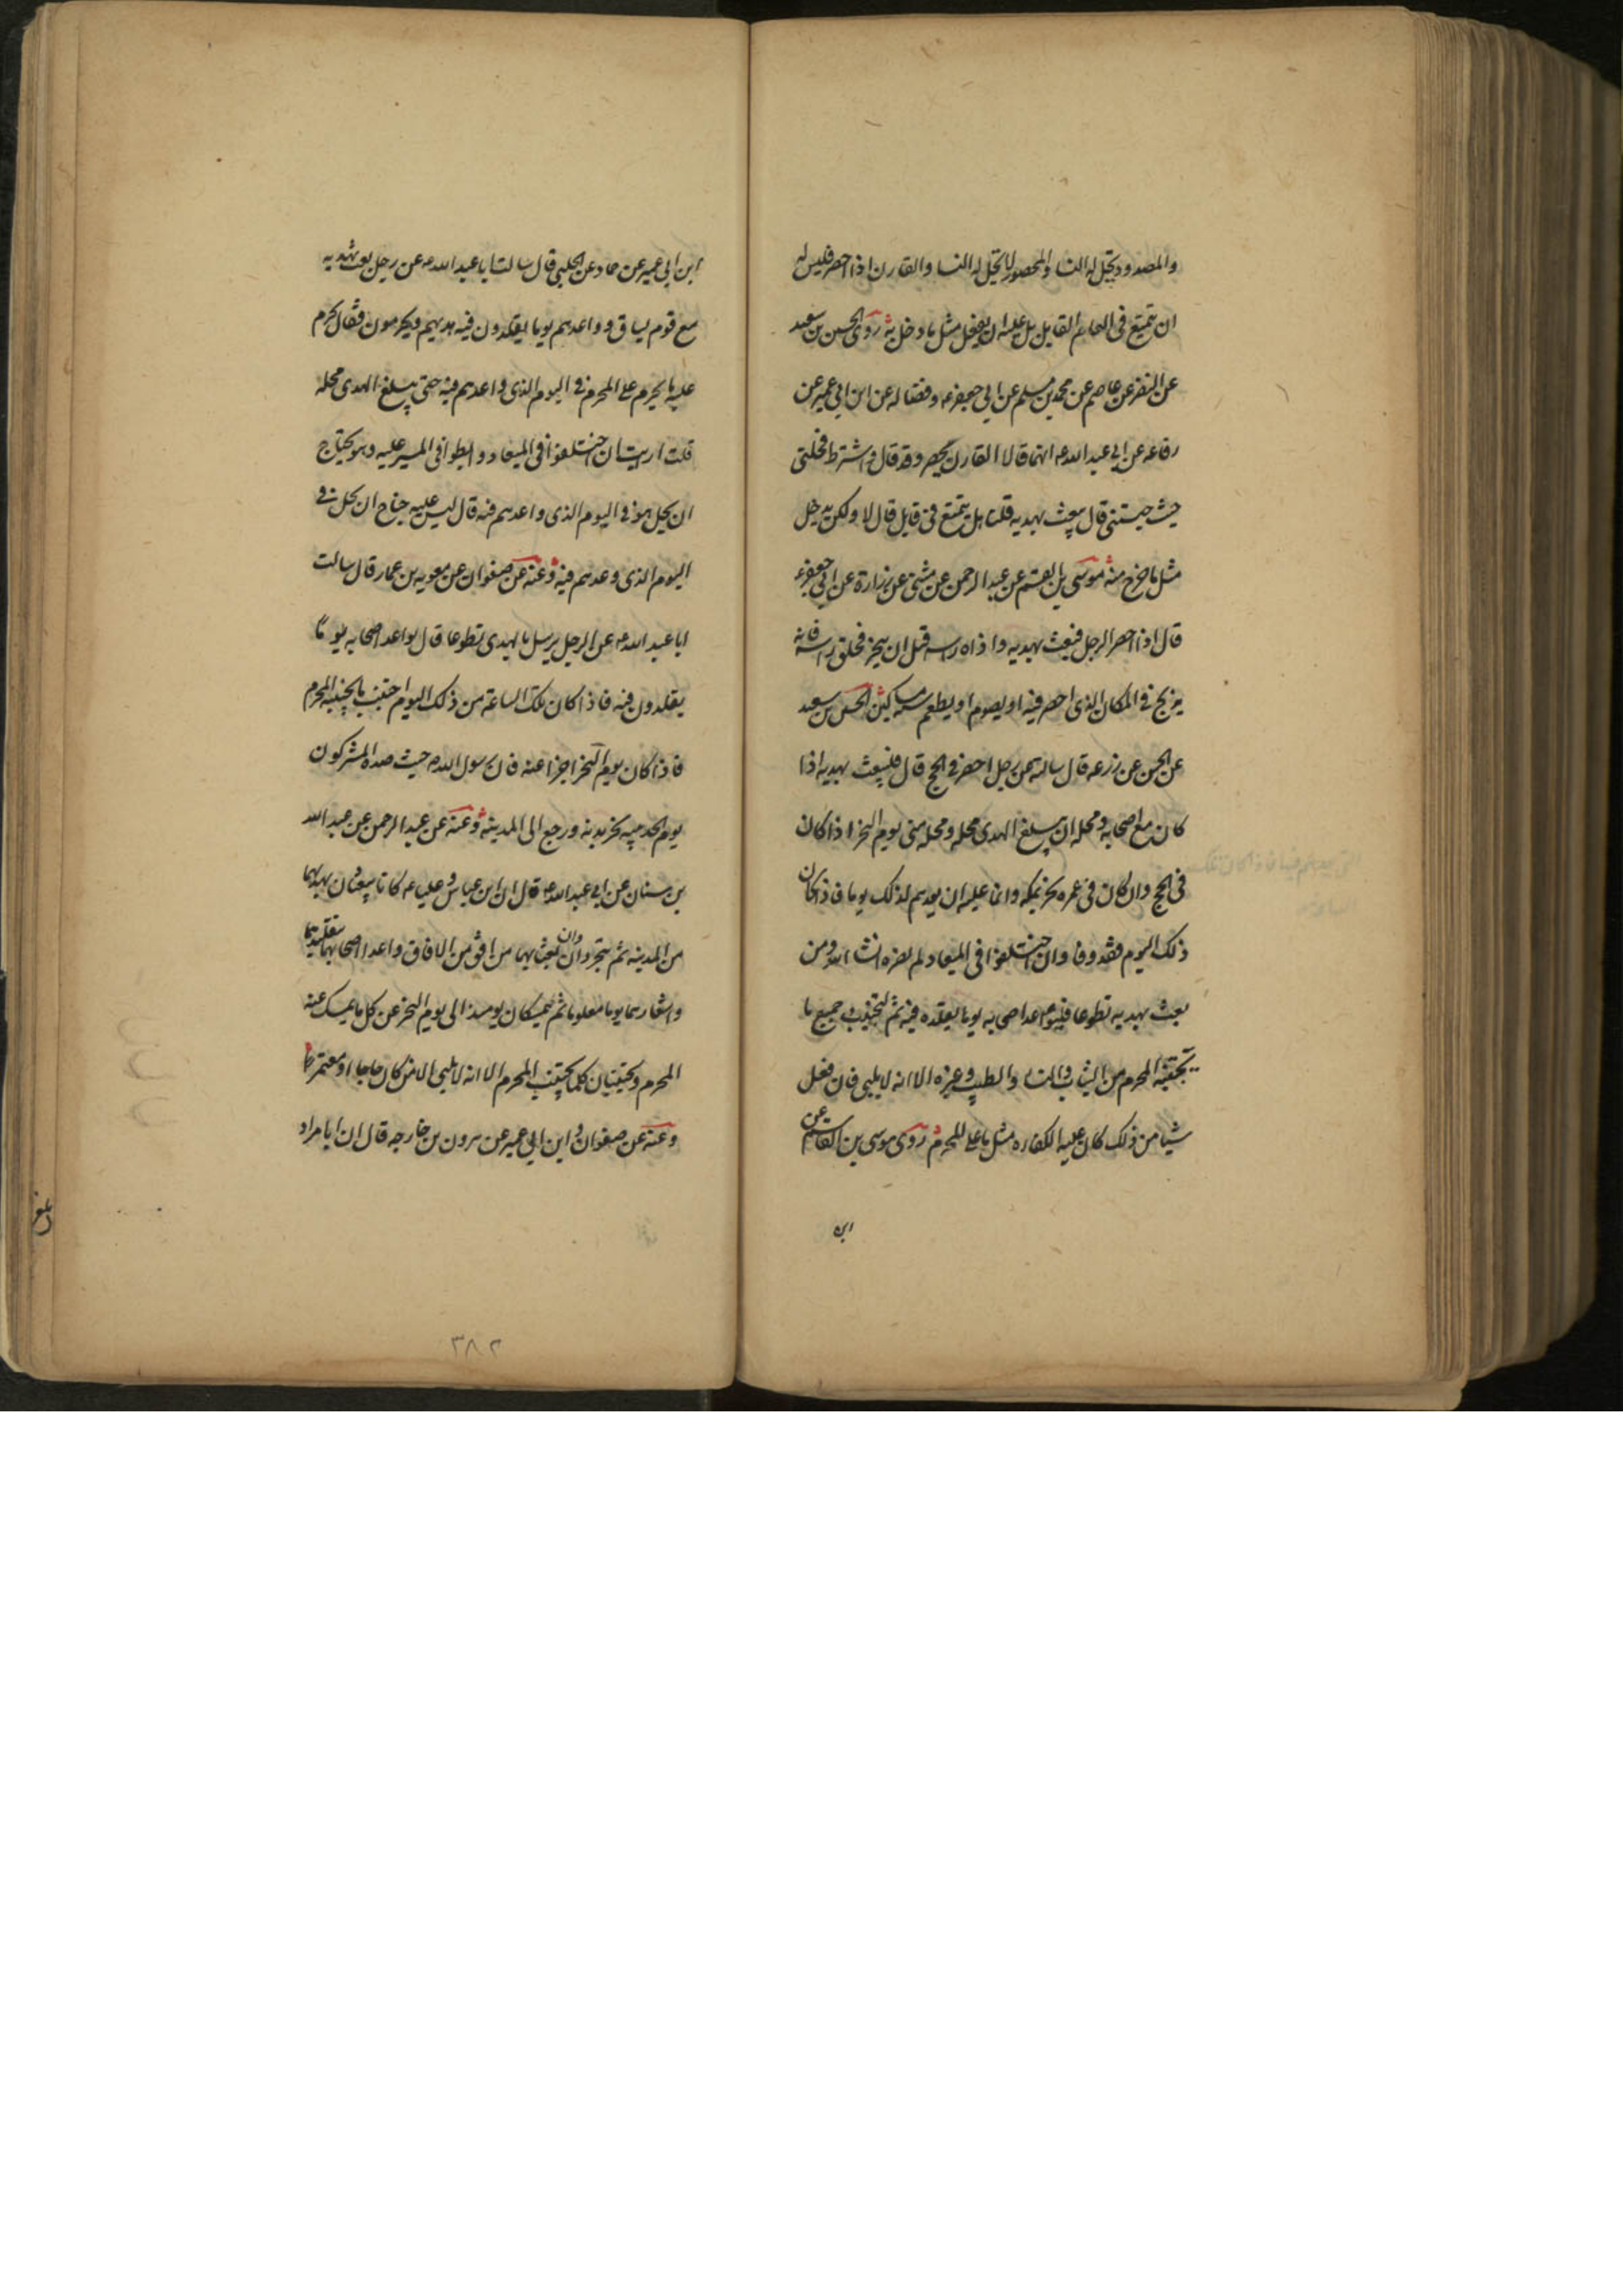 والمصدود تحل له النسا والمحصور لا تحل له النسا والقارن اذا احصر فليس له
ان يتمتع في العام القابل بل عليه ان يفعل مثل ما دخل به روى الحسين بن سعيد
عن النضر عن عاصم عن محمد بن مسلم عن ابي جعفر ع وفضاله عن ابن ابي عمير عن
رفاعه عن ابي عبد الله ع انهما قالا القارن يحصر وقد قال واشترط فحلني
حيث حبستني قال يبعث بهديه قلنا هل يتمتع في قابل قال لا ولكن يدخل
مثل ما خرج منه موسى بن القسم عن عبد الرحمن عن مثنى عن زرارة عن ابي جعفر ع
قال اذا احصر الرجل فبعث بهديه واذاه راسه قبل ان ينحر فحلق راسه فانه
يذبح في المكان الذي احصر فيه او يصوم او يطعم سته مساكين الحسن بن سعيد
عن الحسن عن زرعه قال سالته عن رجل احصر في الحج قال فليبعث بهديه اذا
كان مع اصحابه ومحله ان يبلغ الهدى محله ومحله منى يوم النحر اذا كان
في الحج وان كان في عمره نحر بمكه وانما عليه ان يعدهم لذلك يوما فاذا كان
ذلك اليوم فقد وفا وان اختلفوا في الميعاد لم يضره انشاء الله ومن
بعث بهديه تطوعا فليواعد اصحابه يوما يقلده فيه ثم ليجتنب جميع ما
يجتنبه المحرم من الثياب والنساء والطيب وغيره الا انه لا يلبي فان فعل
شيا من ذلك كان عليه الكفاره مثل ما على المحرم روى موسى بن القاسم عن
ابن
ابن ابي عمير عن حماد عن الحلبي قال سالت ابا عبد الله ع عن رجل بعث بهديه
مع قوم يساق وواعدهم يوما يقلدون فيه هديهم ويحرمون فقال يحرم
عليه ما يحرم على المحرم في اليوم الذي واعدهم فيه حتى يبلغ الهدى محله
قلت ارايت ان اختلفوا في الميعاد وابطوا في المسير عليه وهو يحتاج
ان يحل هو في اليوم الذي واعدهم فيه قال ليس عليه جناح ان يحل في
اليوم الذي وعدهم فيه وعنه عن صفوان عن معويه بن عمار قال سالت
ابا عبد الله ع عن الرجل يرسل بالهدى تطوعا قال يواعد اصحابه يوما
يقلدون فيه فاذا كان تلك الساعة من ذلك اليوم اجتنب ما يجتنبه المحرم
فاذا كان يوم النحر اجزا عنه فان رسول الله ص حيث صده المشركون
يوم الحديبيه نحر بدنه ورجع الى المدينه وعنه عن عبد الرحمن عن عبد الله
بن سنان عن ابي عبد الله ع قال ان ابن عباس وعليا ع كانا يبعثان بهديهما
من المدينه ثم يتجردان وان بعثا بهما من افق من الافاق واعدا اصحابهما بتقليدهما
واشعارهما يوما معلوما ثم يمسكان يومئذ الى يوم النحر عن كل ما يمسك عنه
المحرم ويجتنبان كلما يجتنب المحرم الا انه لا يلبي الا من كان حاجا او معتمرا
وعنه عن صفوان وابن ابي عمير عن هرون بن خارجه قال ان ابا مراد
٣٨٢
بلغ